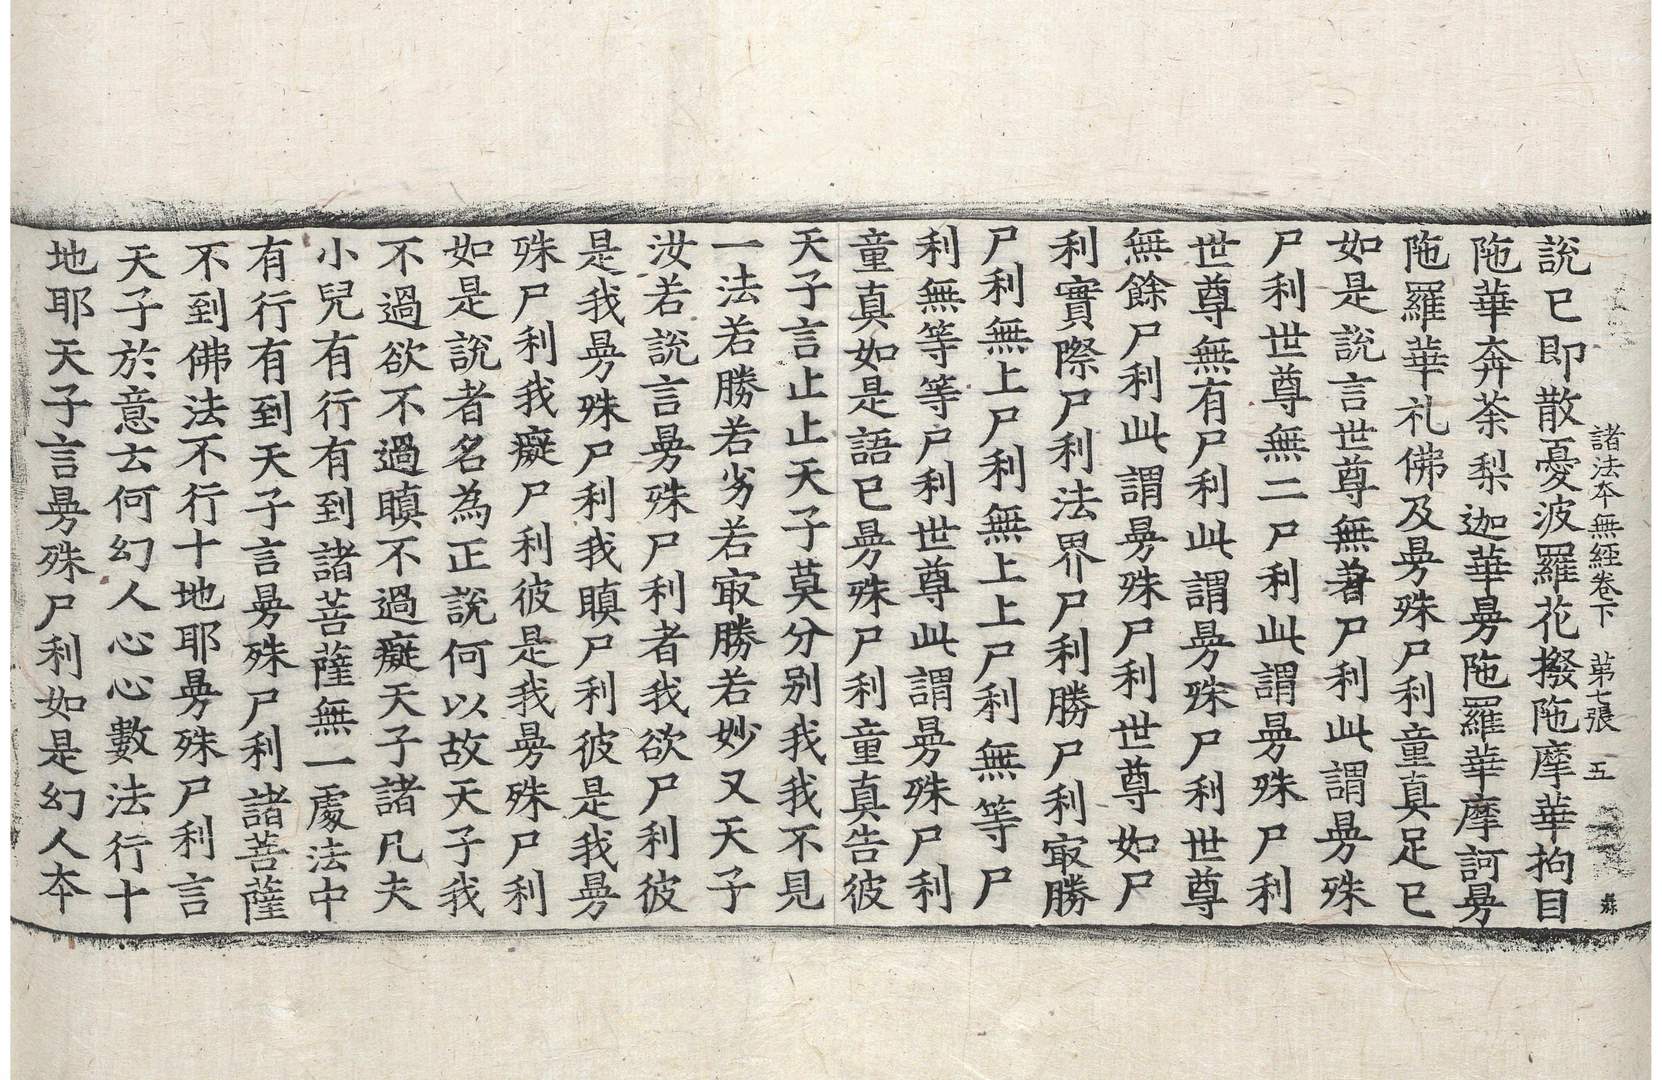 諸法本無經卷下　第七張　五
說已即散憂波羅花撥陁摩華拘目
陁華奔荼梨迦華曼陁羅華摩訶曼
陁羅華礼佛及曼殊尸利童真足已
如是說言世尊無著尸利此謂曼殊
尸利世尊無二尸利此謂曼殊尸利
世尊無有尸利此謂曼殊尸利世尊
無餘尸利此謂曼殊尸利世尊如尸
利實際尸利法界尸利勝尸利㝡勝
尸利無上尸利無上上尸利無等尸
利無等等尸利世尊此謂曼殊尸利
童真如是語已曼殊尸利童真告彼
天子言止止天子莫分別我我不見
一法若勝若劣若㝡勝若妙又天子
汝若說言曼殊尸利者我欲尸利彼
是我曼殊尸利我瞋尸利彼是我曼
殊尸利我癡尸利彼是我曼殊尸利
如是說者名為正說何以故天子我
不過欲不過瞋不過癡天子諸凡夫
小兒有行有到諸菩薩無一處法中
有行有到天子言曼殊尸利諸菩薩
不到佛法不行十地耶曼殊尸利言
天子於意云何幻人心心數法行十
地耶天子言曼殊尸利如是幻人本